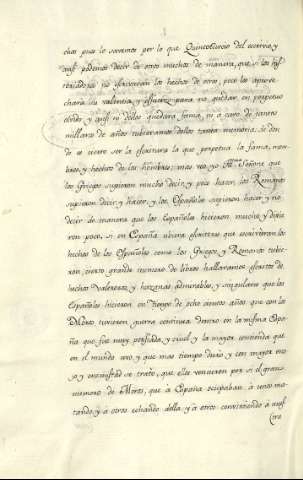 chos pues lo sacamos por lo que Quinto Curcio del escrivio, y
assi podemos decir de otros muchos de manera, que si los his-
toriadores no escrivieran los hechos de otros, poco les aprove-
chara su valentia, y esfuerzo para no quedar en perpetuo
olvido y assi ni dellos quedara fama, ni a cavo de tantos
millares de años tubieramos dellos tanta memoria. De don-
de es cierto ser la escritura la que perpetua la fama, nom-
bre, y hechos de los hombres; mas veo yo Señor que
los Griegos supieron mucho decir, y poco hacer, los Romanos
supieron decir, y hacer, y los Españoles supieron hacer, y no
decir de manera que los Españoles hicieron mucho, y dixe-
ron poco, si en España ubiera escritores que escrivieran los
hechos de los Españoles como los Griegos, y Romanos tubie-
ron, cierto grande numero de libros hallaramos escritos de
hechos valerosos, y hazañas admirables, y singulares que los
Españoles hicieron en tiempo de ocho cientos años que con los
Moros tuvieron guerra continua dentro en la misma Espa-
ña que fue muy porfiada, y cruel y la mayor contienda que
en el mundo uvo, y que mas tiempo duro y con mayor eno-
jo y enemistad se trato, que ellos vencieron por si el gran
numero de Moros, que a España ocupaban, a unos ma-
tando, y a otros echando della, y a otros convirtiendo, à nuestra